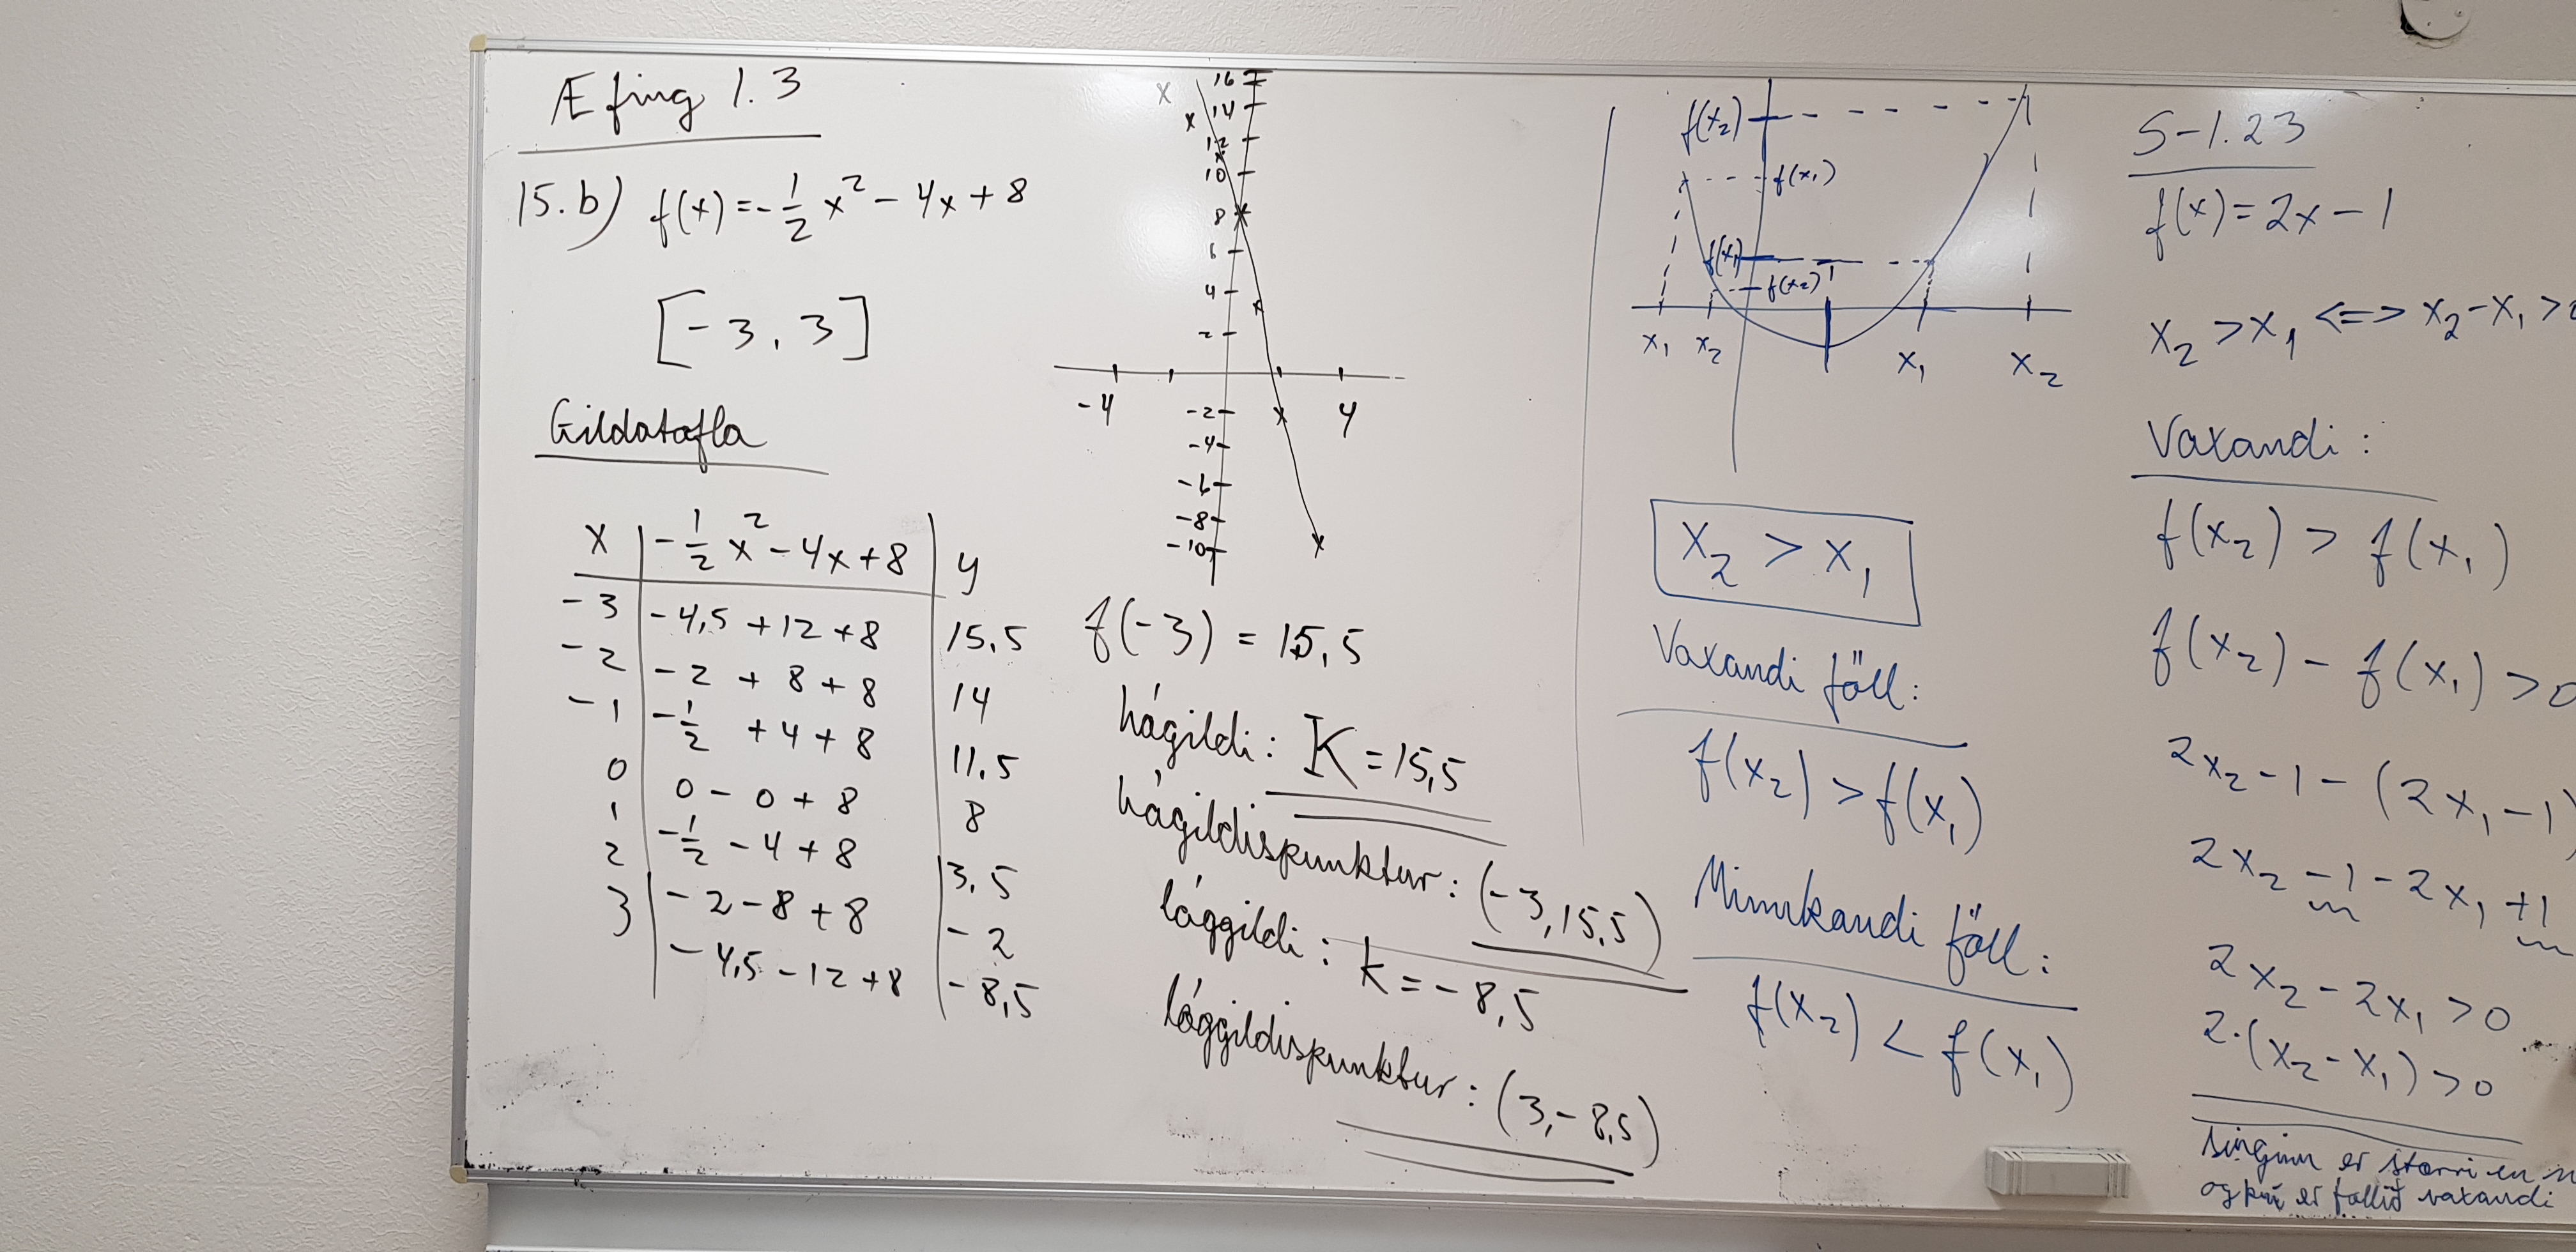 Æfing 1.3
15.b) f(x) = -½x² - 4x + 8
[-3, 3]
Gildatafla
x | -½x² - 4x + 8 | y
-3 | -4,5 + 12 + 8 | 15,5
-2 | -2 + 8 + 8 | 14
-1 | -½ + 4 + 8 | 11,5
0 | 0 - 0 + 8 | 8
1 | -½ - 4 + 8 | 3,5
2 | -2 - 8 + 8 | -2
3 | -4,5 - 12 + 8 | -8,5
16
14
12
10
8
6
4
2
-4 4
-2
-4
-6
-8
-10
f(-3) = 15,5
hágildi: K = 15,5
hágildispunktur: (-3, 15,5)
lággildi: k = -8,5
lággildispunktur: (3, -8,5)
f(x₂)
f(x₁)
f(x₁)
f(x₂)
1
x₁ x₂ x₁ x₂
x₂ > x₁
Vaxandi föll:
f(x₂) > f(x₁)
Minnkandi föll:
f(x₂) < f(x₁)
S-1.23
f(x) = 2x - 1
x₂ > x₁ <=> x₂ - x₁ >
Vaxandi:
f(x₂) > f(x₁)
f(x₂) - f(x₁) > 0
2x₂ - 1 - (2x₁ - 1)
2x₂ - 1 - 2x₁ + 1
2x₂ - 2x₁ > 0
2·(x₂ - x₁) > 0
er stærri en
og því er fallið vaxandi